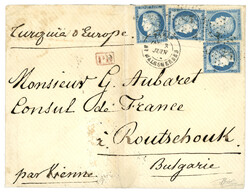 Turquie d'Europe
PD
JUIN
Monsieur G. Aubaret
Consul de France
à Routschouk
Bulgarie
par Vienne